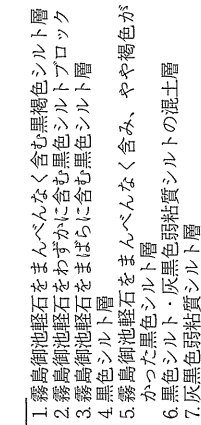 1. 霧島御池軽石をまんべんなく含む黒褐色シルト層
2. 霧島御池軽石をわずかに含む黒色シルトブロック
3. 霧島御池軽石をまばらに含む黒色シルト層
4. 黒色シルト層
5. 霧島御池軽石をまんべんなく含み、やや褐色が
かった黒色シルト層
6. 黒色シルト・灰黒色弱粘質シルトの混土層
7. 灰黒色弱粘質シルト層